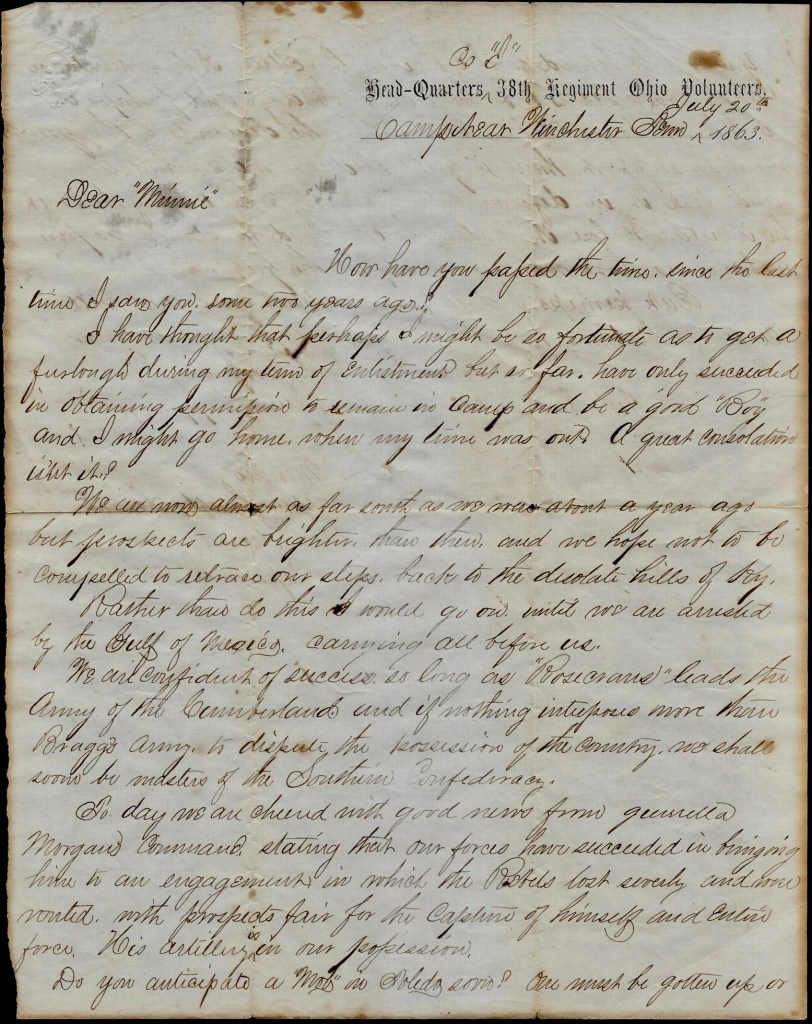 Co "C"
Head-Quarters, 38th Regiment Ohio Volunteers,
July 20th
Camp Near Winchester Tenn 1863.
Dear "Minnie"
How have you passed the time. since the last
time I saw you. some two years ago?
I have thought that perhaps I might be so fortunate as to get a
furlough during my term of enlistment but so far. have only succeeded
in obtaining permission to remain in Camp and be a good "Boy"
and I might go home. when my time was out. A great consolation
is'nt it?
We are now almost as far south as we were about a year ago
but prospects are brighter. than then. and we hope not to be
compelled to retrace our steps. back to the desolate hills of Ky.
Rather than do this I would go on until we are arrested
by the Gulf of Mexico. carrying all before us.
We are confident of success. so long as "Rosecrans" leads the
Army of the Cumberland and if nothing interposes more than
Braggs Army. to dispute the possession of the country. we shall
soon be masters of the Southern Confederacy.
To day we are cheered with good news from guerrilla
Morgans Command. stating that our forces have succeeded in bringing
him to an engagement in which the Rebels lost severly and were
routed. with prospects fair for the capture of himself and entire
force. His artillery is in our possession.
Do you anticipate a "Mob" in Toledo soon? One must be gotten up or